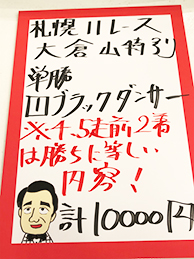 札幌11レース
大倉山特別
単勝
凹ブラックダンサー
※4、5走前2着
は勝ちに等しい
内容！
計10000円